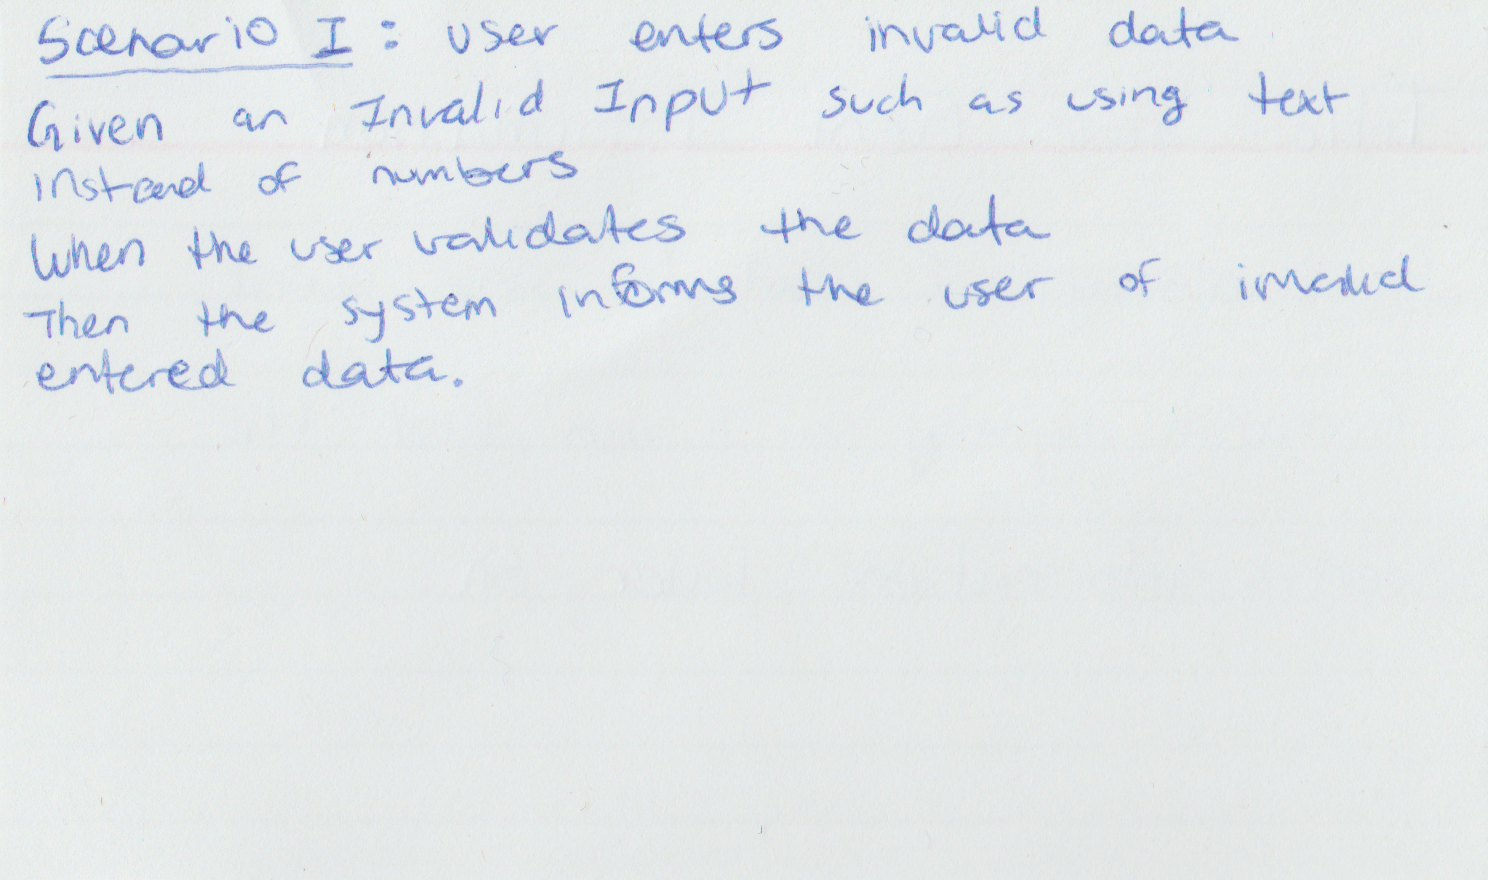 Scenario I: user enters invalid data
Given an Invalid Input such as using text
instead of numbers
When the user validates the data
Then the system informs the user of invalid
entered data.